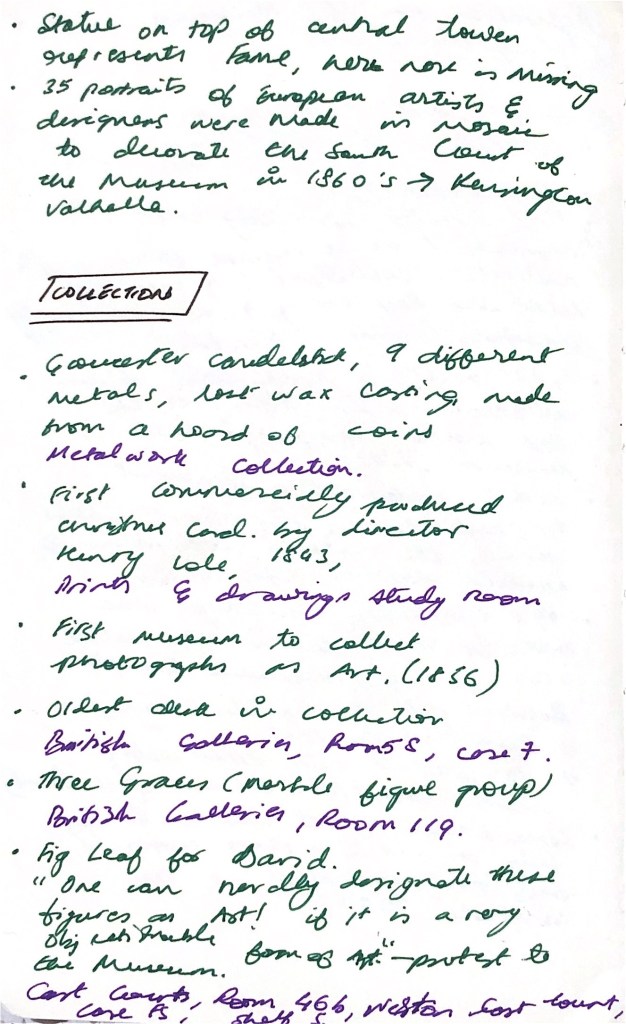 • Statue on top of central tower
represents Fame, her nose is missing
• 35 portraits of European artists &
designers were made in mosaic
to decorate the South Court of
the Museum in 1860's → Kensington
Valhalla.
COLLECTIONS
• Gloucester candelstick, 9 different
metals, lost wax casting, made
from a hoard of coins
Metalwork Collection.
• First commercially produced
christmas card. by director
Henry Cole, 1843,
Prints & drawings study room
• First museum to collect
photographs as Art. (1856)
• Oldest desk in collection
British Galleries, Room 58, case 7.
• Three Graces (marble figure group)
British Galleries, Room 119.
• Fig Leaf for David.
"One can hardly designate these
figures as Art! if it is a very
objectionable form of Art." - protest to
the Museum.
Cast Courts, Room 46b, Weston Cast Court,
case FS, shelf S